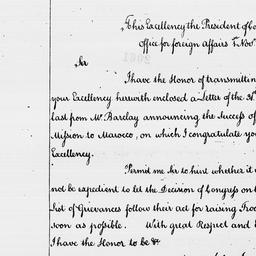 His Excellency the President of Co
Office for foreign Affairs 2 Nov
Sir
I have the Honor of transmittin
your Excellency herewith enclosed a Letter of the
last from Mr. Barclay announcing the Success of
Mission to Marocco, on which I congratulate yo
Excellency.
Permit me Sir to hint whether it
not be expedient to let the Decision of Congress on t
List of Grievances follow their act for raising Troo
soon as possible. With great Respect and
I have the Honor to be &c